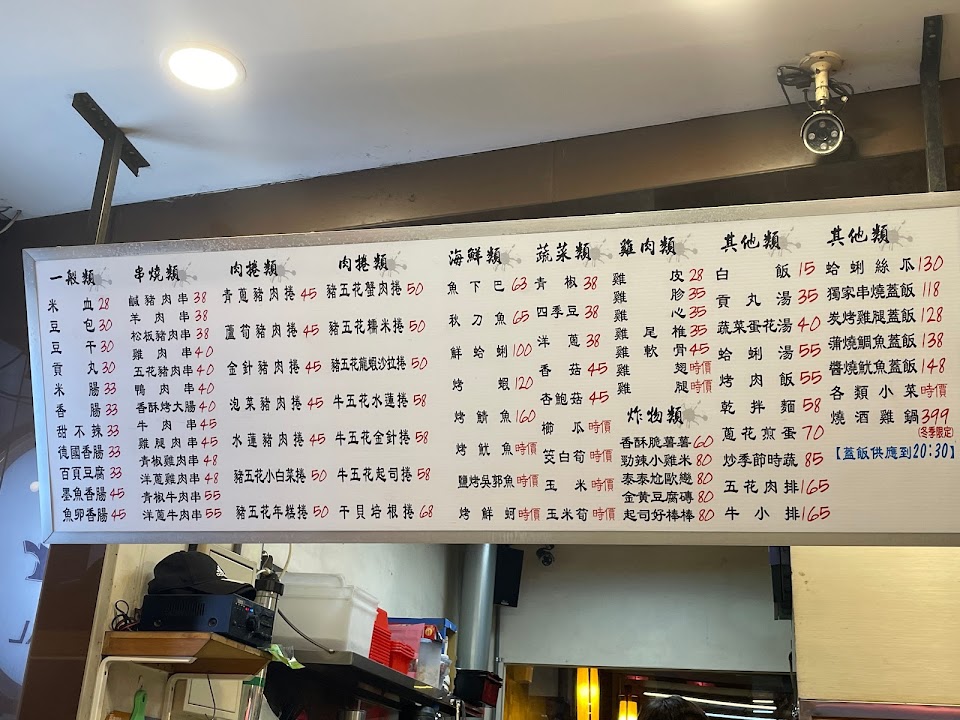 一般類
米血 28
豆包 30
豆干 30
貢丸 30
米腸 33
香腸 33
甜不辣 33
德國香腸 33
百頁豆腐 33
墨魚香腸 45
魚卵香腸 45
串燒類
鹹豬肉串 38
羊肉串 38
松板豬肉串 38
雞肉串 40
五花豬肉串 40
鴨肉串 40
香酥烤大腸 40
牛肉串 45
雞腿肉串 45
青椒雞肉串 48
洋蔥雞肉串 48
青椒牛肉串 55
洋蔥牛肉串 55
肉捲類
青蔥豬肉捲 45
蘆筍豬肉捲 45
金針豬肉捲 45
泡菜豬肉捲 45
水蓮豬肉捲 45
豬五花小白菜捲 50
豬五花年糕捲 50
肉捲類
豬五花蟹肉捲 50
豬五花糯米捲 50
豬五花龍蝦沙拉捲 50
牛五花水蓮捲 58
牛五花金針捲 58
牛五花起司捲 58
干貝培根捲 68
海鮮類
魚下巴 63
秋刀魚 65
鮮蛤蜊 100
烤蝦 120
烤鯖魚 160
烤魷魚 時價
鹽烤吳郭魚 時價
烤鮮蚵 時價
蔬菜類
青椒 38
四季豆 38
洋蔥 38
香菇 45
杏鮑菇 45
櫛瓜 時價
筊白筍 時價
玉米 時價
玉米筍 時價
雞肉類
雞皮 28
雞胗 35
雞心 35
雞尾椎 35
雞軟骨 45
雞翅 時價
雞腿 時價
炸物類
香酥脆薯薯 60
勁辣小雞米 80
泰泰尬歐戀 80
金黃豆腐磚 80
起司好棒棒 80
其他類
白飯 15
貢丸湯 35
蔬菜蛋花湯 40
蛤蜊湯 55
烤肉飯 55
乾拌麵 58
蔥花煎蛋 70
炒季節時蔬 85
五花肉排 165
牛小排 165
其他類
蛤蜊絲瓜 130
獨家串燒蓋飯 118
炭烤雞腿蓋飯 128
蒲燒鯛魚蓋飯 138
醬燒魷魚蓋飯 148
各類小菜 時價
燒酒雞鍋 399
(冬季限定)
【蓋飯供應到20:30】